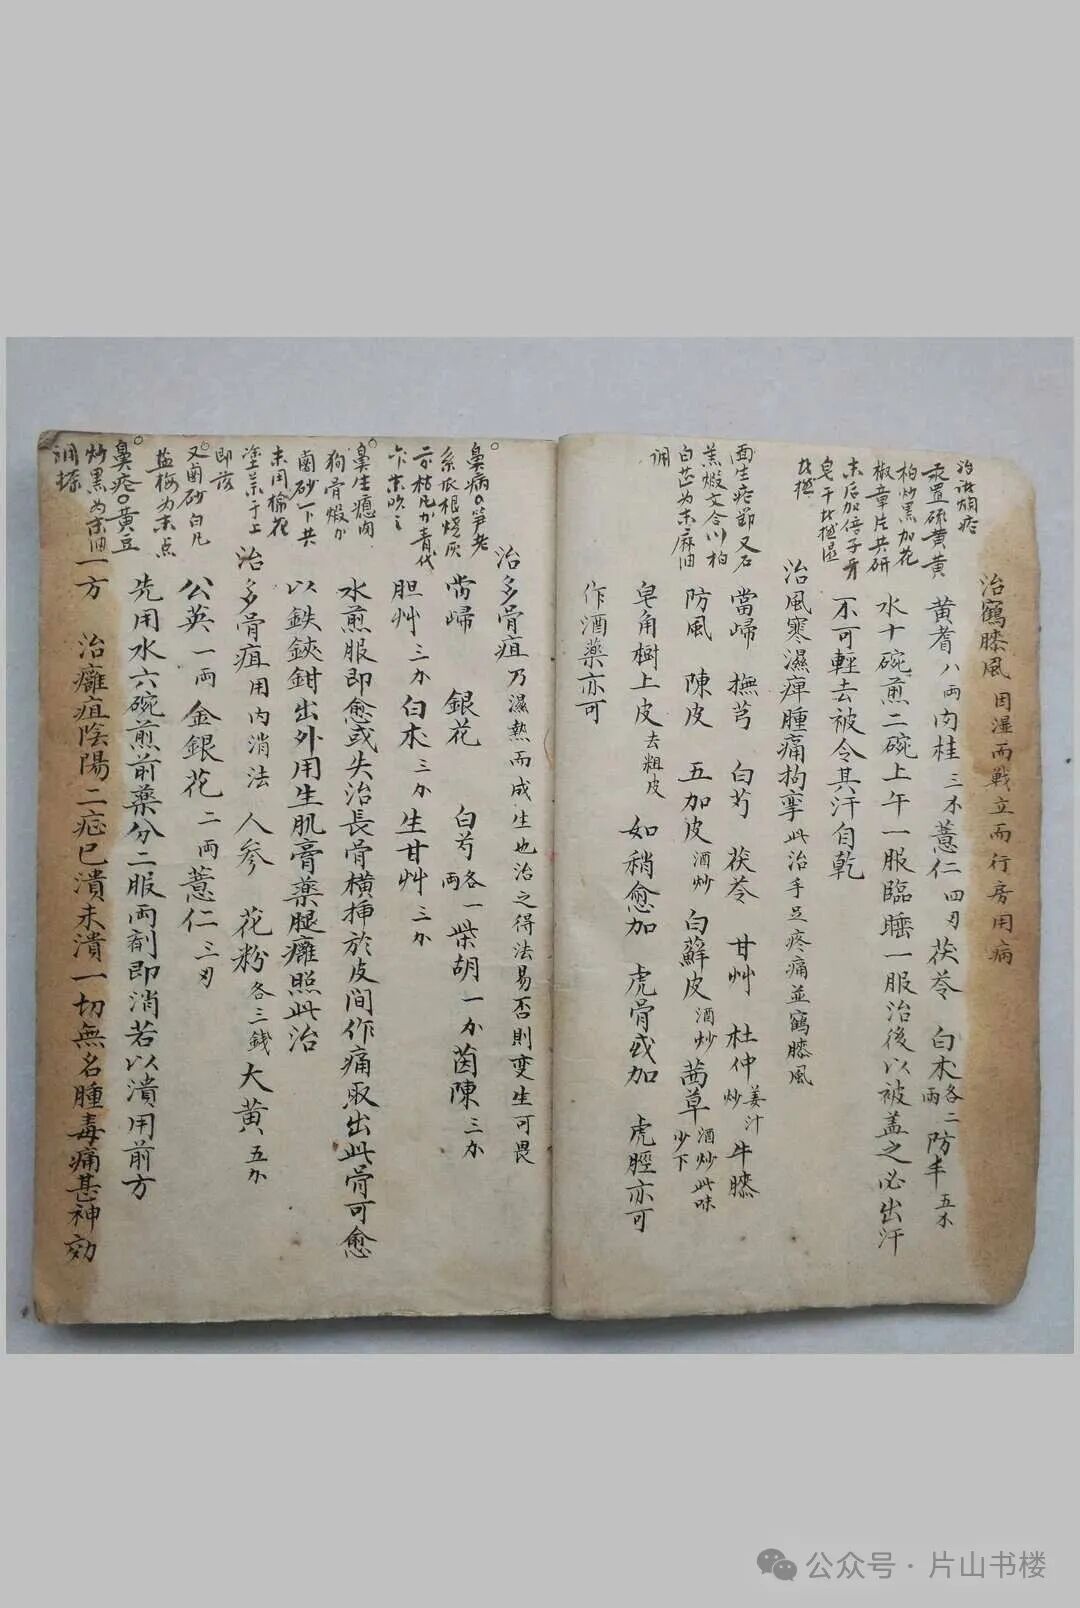 治鶴膝風 因湿而戰立而行房用病
黄耆八兩 肉桂三 薏仁四 茯苓 白朮各二兩 防丰五
水十碗煎二碗上午一服臨睡一服治後以被盖之必出汗
不可輕去被令其汗自乾
治風寒濕痺腫痛拘攣 此治手足疼痛並鶴膝風
當歸 撫芎 白芍 茯苓 甘艸 杜仲姜汁炒 牛膝
防風 陳皮 五加皮酒炒 白蘚皮酒炒 茜草酒炒此味少下
皂角樹上皮去粗皮 如稍愈加 虎骨或加 虎脛亦可
作酒藥亦可
汞置硫黄黄
柏炒黑加花
椒章片共研
末后加倍子牙
皂干
面生疮節又石
羔煅文合川柏
白芷为末麻油
调
治多骨疽 乃濕熱而成生也治之得法易否則变生可畏
當歸 銀花 白芍各一兩 柴胡一 茵陳三
胆艸三 白朮三 生甘艸三
水煎服即愈或失治長骨橫揷於皮間作痛取出此骨可愈
以鉄鋏鉗出外用生肌膏藥腿癰照此治
治多骨疽 用内消法 人參 花粉各三錢 大黄五
公英一兩 金銀花二兩 薏仁三
先用水六碗煎前藥分二服兩剤即消若以潰用前方
一方 治癰疽陰陽二症已潰未潰一切無名腫毒痛甚神効
鼻病○笋老
系瓜根烧灰
鼻生瘜肉
狗骨煅
鹵砂一下共
末用棉花
塗藥于上
即落
又鹵砂白凡
盐梅为末点
鼻疮○黄豆
炒黑为末油
调搽
公众号·片山书楼